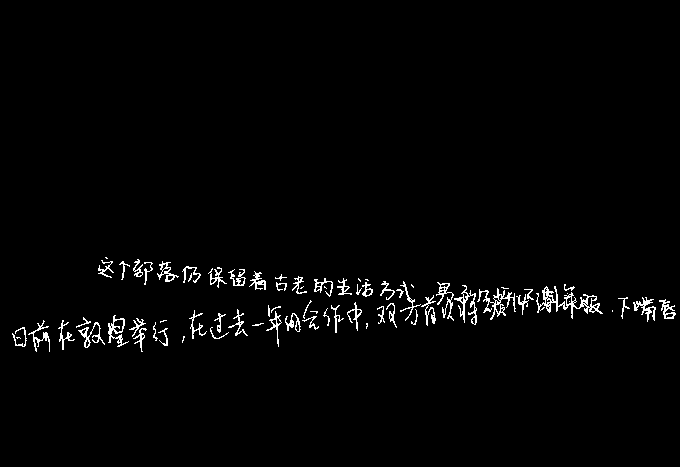 这个部落仍保留着古老的生活方式
日前在敦煌举行,在过去一年的合作中,双方首 服.下嘴唇